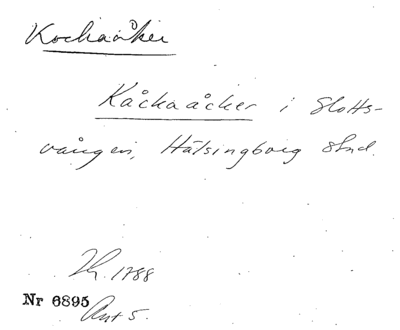 Kockaåker
Kåckaåcker i Slotts-
vången, Hälsingborg stad.
1788
Nr 6895
Akt 5.